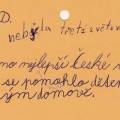 D.
nebyla třetí světov
mo nejlepší české r
se pomohlo dětem
ým domově.